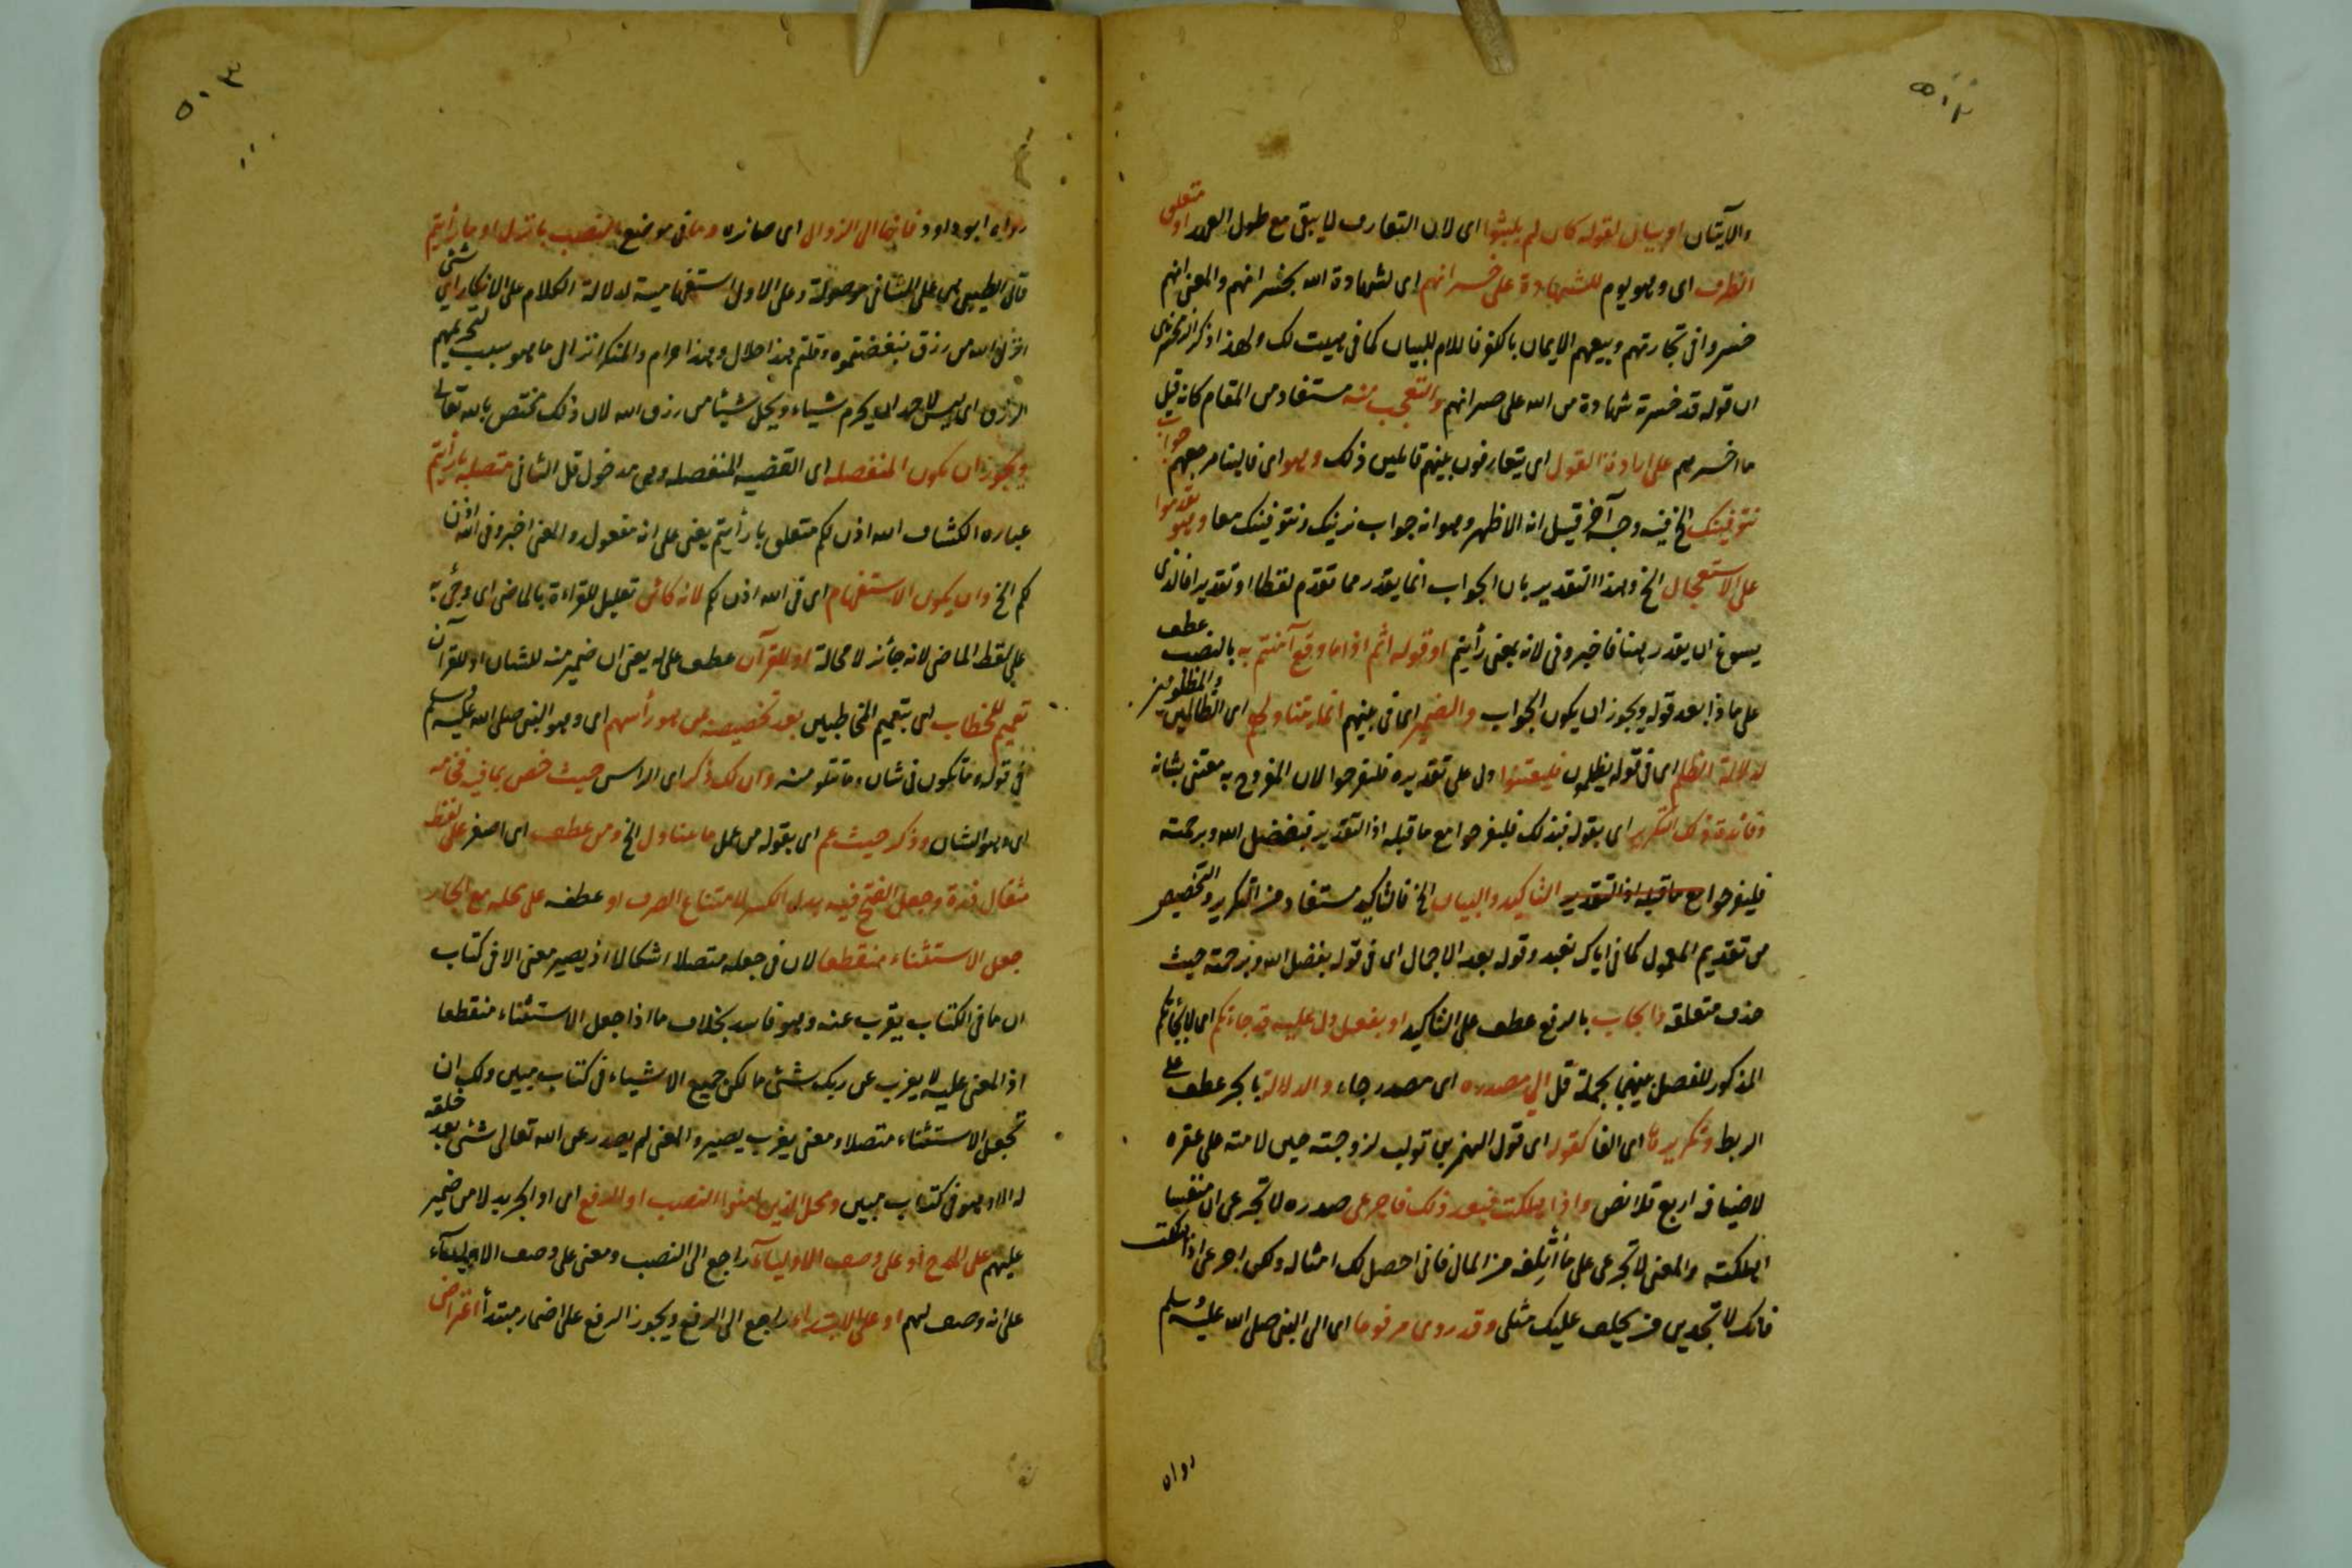 والآيتان او بيان لقوله كان لم يلبثوا اى لان التعارف لا يبقى مع طول العهد او متعلق
الظرف اى وهو يوم للشهادة على خسرانهم اى لشهادة الله بخسرانهم والمعنى انهم
خسروا فى تجارتهم وبيعهم الايمان بالكفر فاللام للبيان كما فى هيت لك ولهذا ذكر الزمخشرى
ان قوله قد خسر شهادة من الله على خسرانهم والتعجب منه مستفاد من المقام كانه قيل
ما اخسرهم على ارادة القول اى يتعارفون بينهم قائلين ذلك وهو اى فالينا مرجعهم جواب
نتوفينك الخ فيه وجه آخر قيل انه الاظهر وهو انه جواب نرينك ونتوفينك معا
على الاستعجال الخ وهذا التقدير بان الجواب انما يقدر مما تقدم لفظا او تقديرا فالذى
يسوغ ان يقدر هنا فاخبرونى لانه بمعنى رأيتم او قوله اثم اذا ما وقع آمنتم به بالنصب عطف
على ماذا بعد قوله ويجوز ان يكون الجواب والضمير اى فى بينهم انما يتناولهم اى الظالمين والمظلومين
لدلالة الظلم اى فى قوله يظلمون فليعتنوا دل على تقديره فليفرحوا لان المفروح به معتنى بشانه
وفائدة ذلك التكرير اى بقوله فبذلك فليفرحوا مع ما قبله اذ التقدير بفضل الله وبرحمته
فليفرحوا مع ما قبله اذ التقدير التاكيد والبيان الخ فالتاكيد مستفاد من التكرير والتخصيص
من تقديم المعمول كما فى اياك نعبد وقوله بعد الاجمال اى فى قوله بفضل الله وبرحمته حيث
حذف متعلقه وايجاب بالرفع عطف على التاكيد او بفعل دل عليه قد جاءتكم اى لا بجاءتكم
المذكور للفصل بينهما بجملة قل الى مصدره اى مصدر جاء والدلالة بالجر عطف على
الربط وتكريرها اى الفا كقوله اى قول النمر بن تولب لزوجته حين لامته على عقره
لاضيافه اربع قلائص واذا هلكت فبعد ذلك فاجزعى صدره لا تجزعى ان منفسا
اهلكته والمعنى لا تجزعى على ما أتلفه من المال فانى احصل لك امثاله ولكن اجزعى اذا هلكت
فانك لا تجدين من يخلف عليك مثلى وقد روى مرفوعا اى الى النبى صلى الله عليه وسلم
رواه
رواه ابو داود فاتخا الى الزوال اى صائره وما فى موضع النصب بانزل او بارأيتم
قال الطيبى هى على الثانى موصولة وعلى الاول استفهامية لدلالة الكلام على الانكار اى شئ
انزل الله من رزق فبغضتموه وقلتم هذا حلال وهذا حرام والمنكر انزال ما هو سبب لتحريمهم
الرزق اى ليس لاحد ان يحرم شياء ويحل شيئا من رزق الله لان ذلك مختص بالله تعالى
ويجوز ان يكون المنفصله اى القضيه المنفصله وهى مدخول قل الثانى متصلة بارأيتم
عباره الكشاف الله اذن لكم متعلق بارأيتم يعنى على انه مفعول والمعنى اخبرونى آلله اذن
لكم الخ وان يكون الاستفهام اى فى الله اذن لكم لانه كائن تعليل للقراءة بالماضى اى وجئ به
على لفظ الماضى لانه جائز لا محالة او للقرآن عطف على له يعنى ان ضمير منه للشان او للقرآن
تعميم للخطاب اى بتعميم المخاطبين بعد تخصيصه بمن هو رأسهم اى وهو النبى صلى الله عليه وسلم
فى قوله وما تكون فى شان وما تتلو منه وان لك ذكر اى الراس حيث خص بما فيه فخامه
اى وهو الشان وذكر حيث عم اى بقوله من عمل ما يتناول الخ ومن عطف اى اصغر على لفظ
مثقال ذرة وجعل الفتح فيه بدل الكسر لامتناع الصرف او عطف على محله مع الجار
جعل الاستثناء منقطعا لان فى جعله متصلا اشكالا اذ يصير معنى الا فى كتاب
ان ما فى الكتاب يعزب عنه وهو فاسد بخلاف ما اذا جعل الاستثناء منقطعا
اذ المعنى عليه لا يعزب عن ربك شئ ما لكن جميع الاشياء فى كتاب مبين ولك ان
تجعل الاستثناء متصلا ومعنى يعزب يصير والمعنى لم يصدر عن الله تعالى شئ بعد خلقه
له الا وهو فى كتاب مبين ومحل الذين آمنوا النصب او الرفع اى او الجر بدلا من ضمير
عليهم على المدح او على وصف الاولياء راجع الى النصب ومعنى على وصف الاولياء
على انه وصف لهم او على الابتداء راجع الى الرفع ويجوز الرفع على اضمار مبتدأ اعتراض